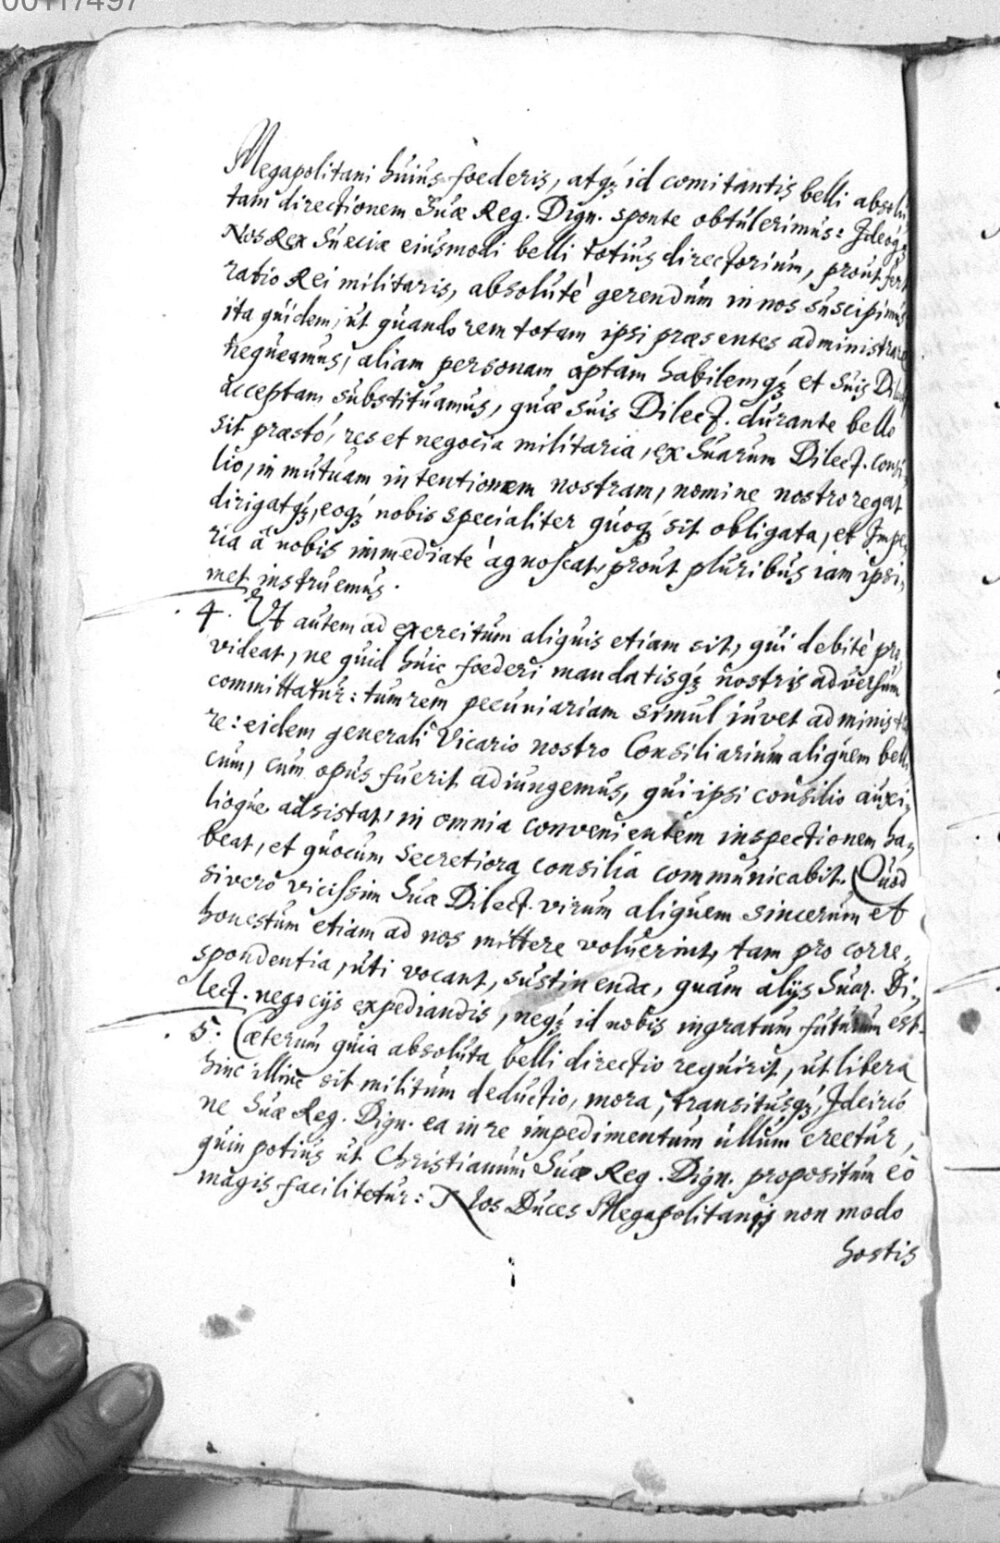 00117497
Megapolitani huius foederis, atqꝫ id comitantis belli absolu
tam directionem Suæ Reg. Dign. sponte obtulerimus: Ideoqꝫ
Nos Rex Sueciæ eiusmodi belli totius directorium, prout fert
ratio Rei militaris, absolutè gerendum in nos suscipimus
ita quidem, ut quando rem totam ipsi præsentes administrare
nequeamus, aliam personam aptam habilemqꝫ et Suis Dilect
acceptam substituamus, quæ Suis Dilect. durante bello
sit præstó, res et negocia militaria, ex Suarum Dilect. consi
lio, in mutuam intentionem nostram, nomine nostro regat
dirigatqꝫ, eoqꝫ nobis specialiter quoqꝫ sit obligata, et Impe,
ria â nobis immediatè agnoscat, prout pluribus iam ipsi,
met instruemus.
4. Vt autem ad exercitum aliquis etiam sit, qui debitè pro
videat, ne quid huic foederi mandatisqꝫ nostris adversum
committatur: tum rem pecuniariam simul iuvet administra
re: eidem generali Vicario nostro Consiliarium aliquem belli
cum, cum opus fuerit adiungemus, qui ipsi consilio auxi,
lioque adsistat, in omnia convenientem inspectionem ha,
beat, et quocum Secretiora consilia communicabit. Quod
si verò vicissim Suæ Dilect. virum aliquem sincerum et
honestum etiam ad nos mittere voluerint, tam pro corre,
spondentia, uti vocant, sustinenda, quàm alijs Suar. Di,
lect. negocijs expediandis, neqꝫ id nobis ingratum futurum est.
5. Cæterum quia absoluta belli directio requirit, ut libera
hinc illinc sit militum deductio, mora, transitusqꝫ, Idcirco
ne Suæ Reg. Dign. ea in re impedimentum ullum creetur,
quin potius ut Christianum Suæ Reg. Dign. propositum eò
magis facilitetur: Nos Duces Megapolitani non modo
hostis